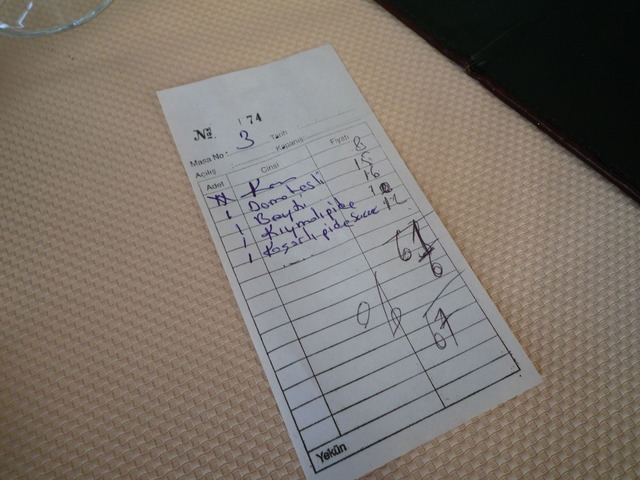 No. 74
Masa No : 3 Tarih :
Açılış Kapanış
Adet Cinsi Fiyatı
8
1 Domatesli 15
1 Beyti 16
1 Kıymalı pide
1 Kaşarlı pide 12
67
6
67
Yekûn